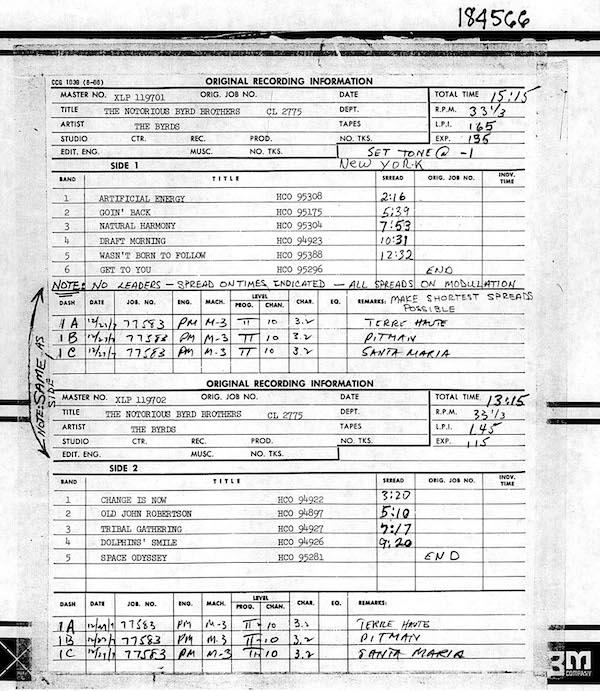 184566
CCG 1030 (8-66) ORIGINAL RECORDING INFORMATION
MASTER NO. XLP 119701 ORIG. JOB NO. DATE TOTAL TIME 15:15
TITLE THE NOTORIOUS BYRD BROTHERS CL 2775 DEPT. R.P.M. 33 1/3
ARTIST THE BYRDS TAPES L.P.I. 165
STUDIO CTR. REC. PROD. NO. TKS. EXP. 135
EDIT. ENG. MUSC. NO. TKS. SET TONE @ -1
SIDE 1 NEW YORK
BAND TITLE SPREAD ORIG. JOB NO. INDV. TIME
1 ARTIFICIAL ENERGY HCO 95308 2:16
2 GOIN' BACK HCO 95175 5:39
3 NATURAL HARMONY HCO 95304 7:53
4 DRAFT MORNING HCO 94923 10:31
5 WASN'T BORN TO FOLLOW HCO 95388 12:32
6 GET TO YOU HCO 95296 END
NOTE: NO LEADERS - SPREAD ON TIMES INDICATED - ALL SPREADS ON MODULATION
DASH DATE JOB. NO. ENG. MACH. LEVEL PROG. CHAN. CHAR. EQ. REMARKS: MAKE SHORTEST SPREADS POSSIBLE
1A 77583 PM M-3 II 10 3.2 TERRE HAUTE
1B 77583 PM M-3 II 10 3.2 PITMAN
1C 77583 PM M-3 II 10 3.2 SANTA MARIA
NOTE: SAME AS SIDE 1
ORIGINAL RECORDING INFORMATION
MASTER NO. XLP 119702 ORIG. JOB NO. DATE TOTAL TIME 13:15
TITLE THE NOTORIOUS BYRD BROTHERS CL 2775 DEPT. R.P.M. 33 1/3
ARTIST THE BYRDS TAPES L.P.I. 145
STUDIO CTR. REC. PROD. NO. TKS. EXP. 115
EDIT. ENG. MUSC. NO. TKS.
SIDE 2
BAND TITLE SPREAD ORIG. JOB NO. INDV. TIME
1 CHANGE IS NOW HCO 94922 3:20
2 OLD JOHN ROBERTSON HCO 94897 5:10
3 TRIBAL GATHERING HCO 94927 7:17
4 DOLPHINS' SMILE HCO 94926 9:20
5 SPACE ODYSSEY HCO 95281 END
DASH DATE JOB. NO. ENG. MACH. LEVEL PROG. CHAN. CHAR. EQ. REMARKS:
1A 77583 PM M-3 II 10 3.2 TERRE HAUTE
1B 77583 PM M-3 II 10 3.2 PITMAN
1C 77583 PM M-3 II 10 3.2 SANTA MARIA
3M COMPANY